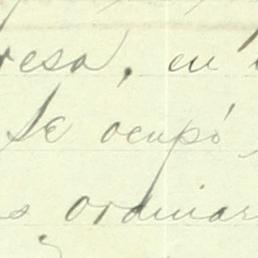 resa, en
se ocupó
s ordinar